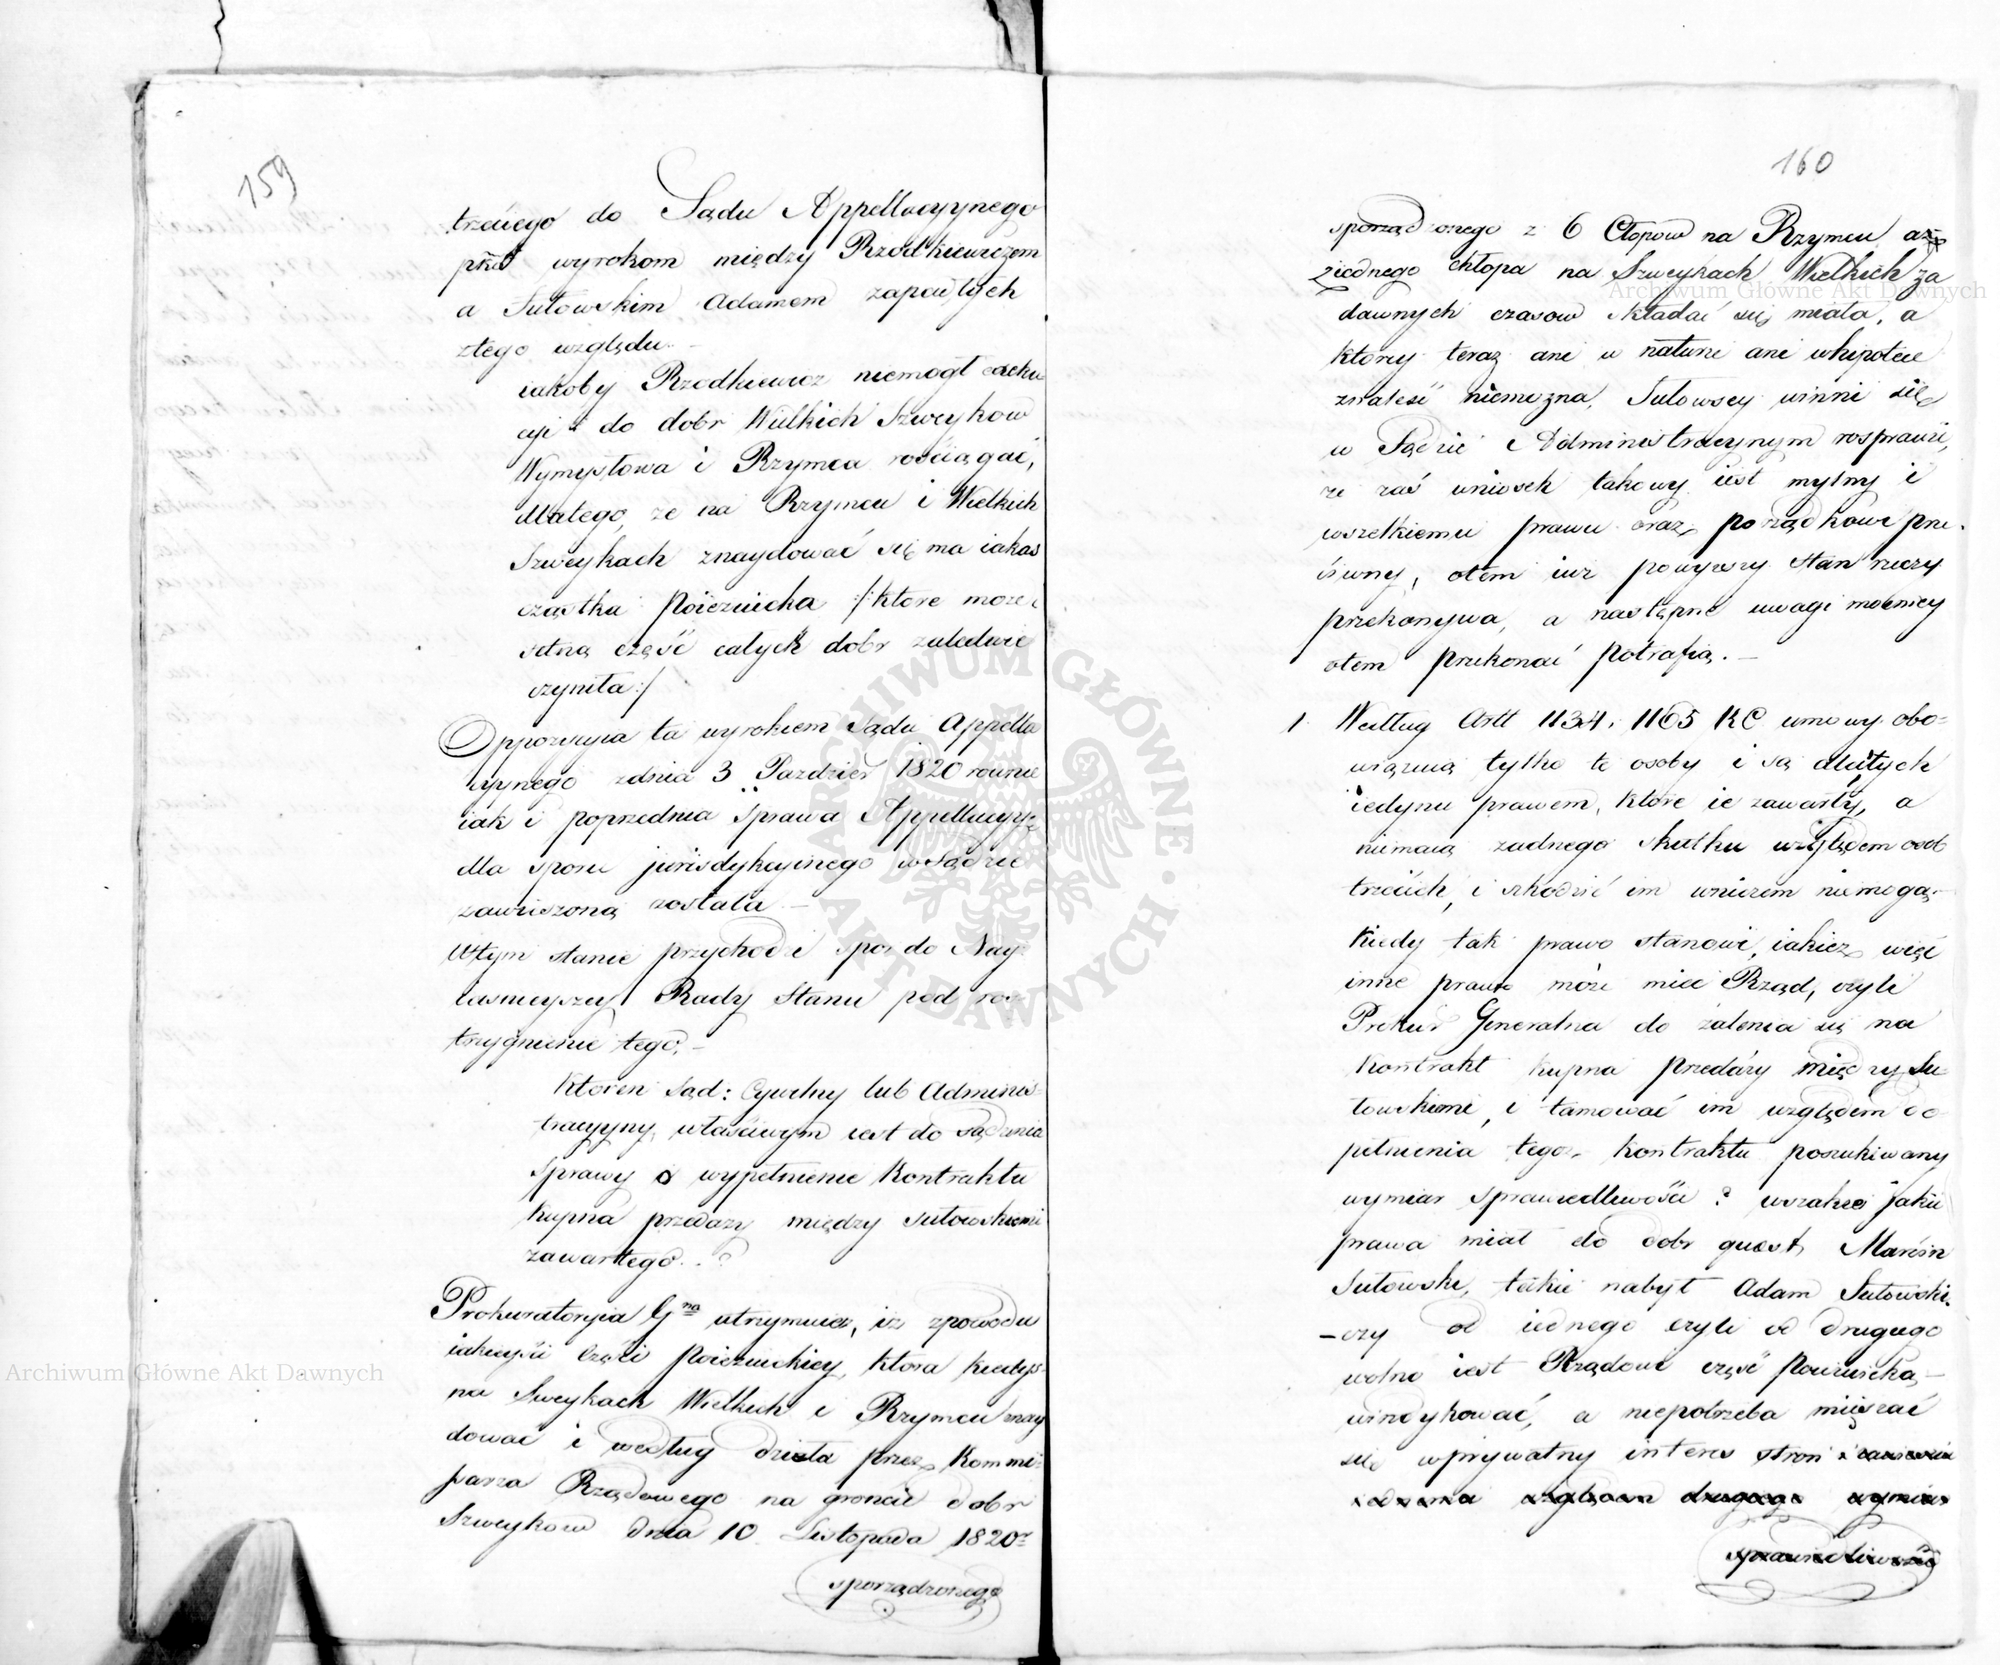 159
trzeciego do Sądu Appellacyynego
przs wyrokom między Rzodkiewiczem
a Sutowskim Adamem zapadłych
ztego względu. –
iakoby Rzodkiewicz niemogł exeku
cyi do dobr Wielkich Szweykow
Wymysłowa i Rzymca rościągać,
dlatego, że na Rzymcu i Wielkich
Szweykach znaydować się ma iakaś
cząstka Poiezuicka /: ktore może
setną część całych dobr zaledwie
czyniła :/
Oppozycyia ta wyrokiem Sądu Appella
cyynego zdnia 3 Pazdzier 1820 rownie
iak i poprzednia Sprawa Appellacyy
dla sporu jurisdykcyinego w Sądzie
zawieszoną została –
Wtym stanie przychodzi spor do Nay
iaśnieyszey Rady Stanu pod roz
trzygnienie tego. –
Ktoren Sąd: Cywilny lub Adminis
tracyyny, właściwym iest do sądzenia
Sprawy o wypełnienie Kontraktu
Kupna przedaży między Sutowskiemi
zawartego. . ?
Prokuratoryia Gna utrzymuie, iż zpowodu
iakieyści Części Poiezuickiey, ktora kiedyś
na Szweykach Wielkich i Rzymcu znay
dować i według dzieła przez Kommi
ssarza Rządowego na gruncie dobr
Szweykow dnia 10 Listopada 1820r
sporządzonego
160
sporządzonego z 6 Chłopow na Rzymcu
ziednego chłopa na Szweykach Wielkich za
dawnych czasow składać się miała, a
ktorey teraz ani w naturze ani whipotece
znaleść niemożna, Sutowscy winni się
w Sądzie Administracyinym rosprawić,
że zaś wniosek takowy iest mylny i
wszelkiemu prawu oraz porządkowi prze
ciwny, otem iuż powyższy Stan rzeczy
przekonywa, a następne uwagi mocniey
otem przekonać potrafią. –
1. Według Artt 1134. 1165 KC umowy obo=
wiązuią tylko te osoby i są dlatych
iedynie prawem, które ie zawarły, a
niemaią żadnego skutku względem osob
trzecich, i szkodzić im wniczem niemogą. –
Kiedy tak prawo stanowi, iakież więc
inne prawo może mieć Rząd, czyli
Prokur Generalna do żalenia się na
Kontrakt kupna przedaży między Su
towskiemi, i tamować im względem do
pełnienia tegoż Kontraktu poszukiwany
wymiar Sprawiedliwości? wszakże jakie
prawa miał do dobr quest. Marcin
Sutowski, takie nabył Adam Sutowski.
– czy od iednego czyli od drugiego
wolno iest Rządowi część Poiezuicką –
windykować, a niepotrzeba mięszać
się wprywatny interes stron i
względem drugiego wymiar
sprawiedliwości
Archiwum Główne Akt Dawnych
Archiwum Główne Akt Dawnych
ARCHIWUM GŁÓWNE · AKT DAWNYCH ·